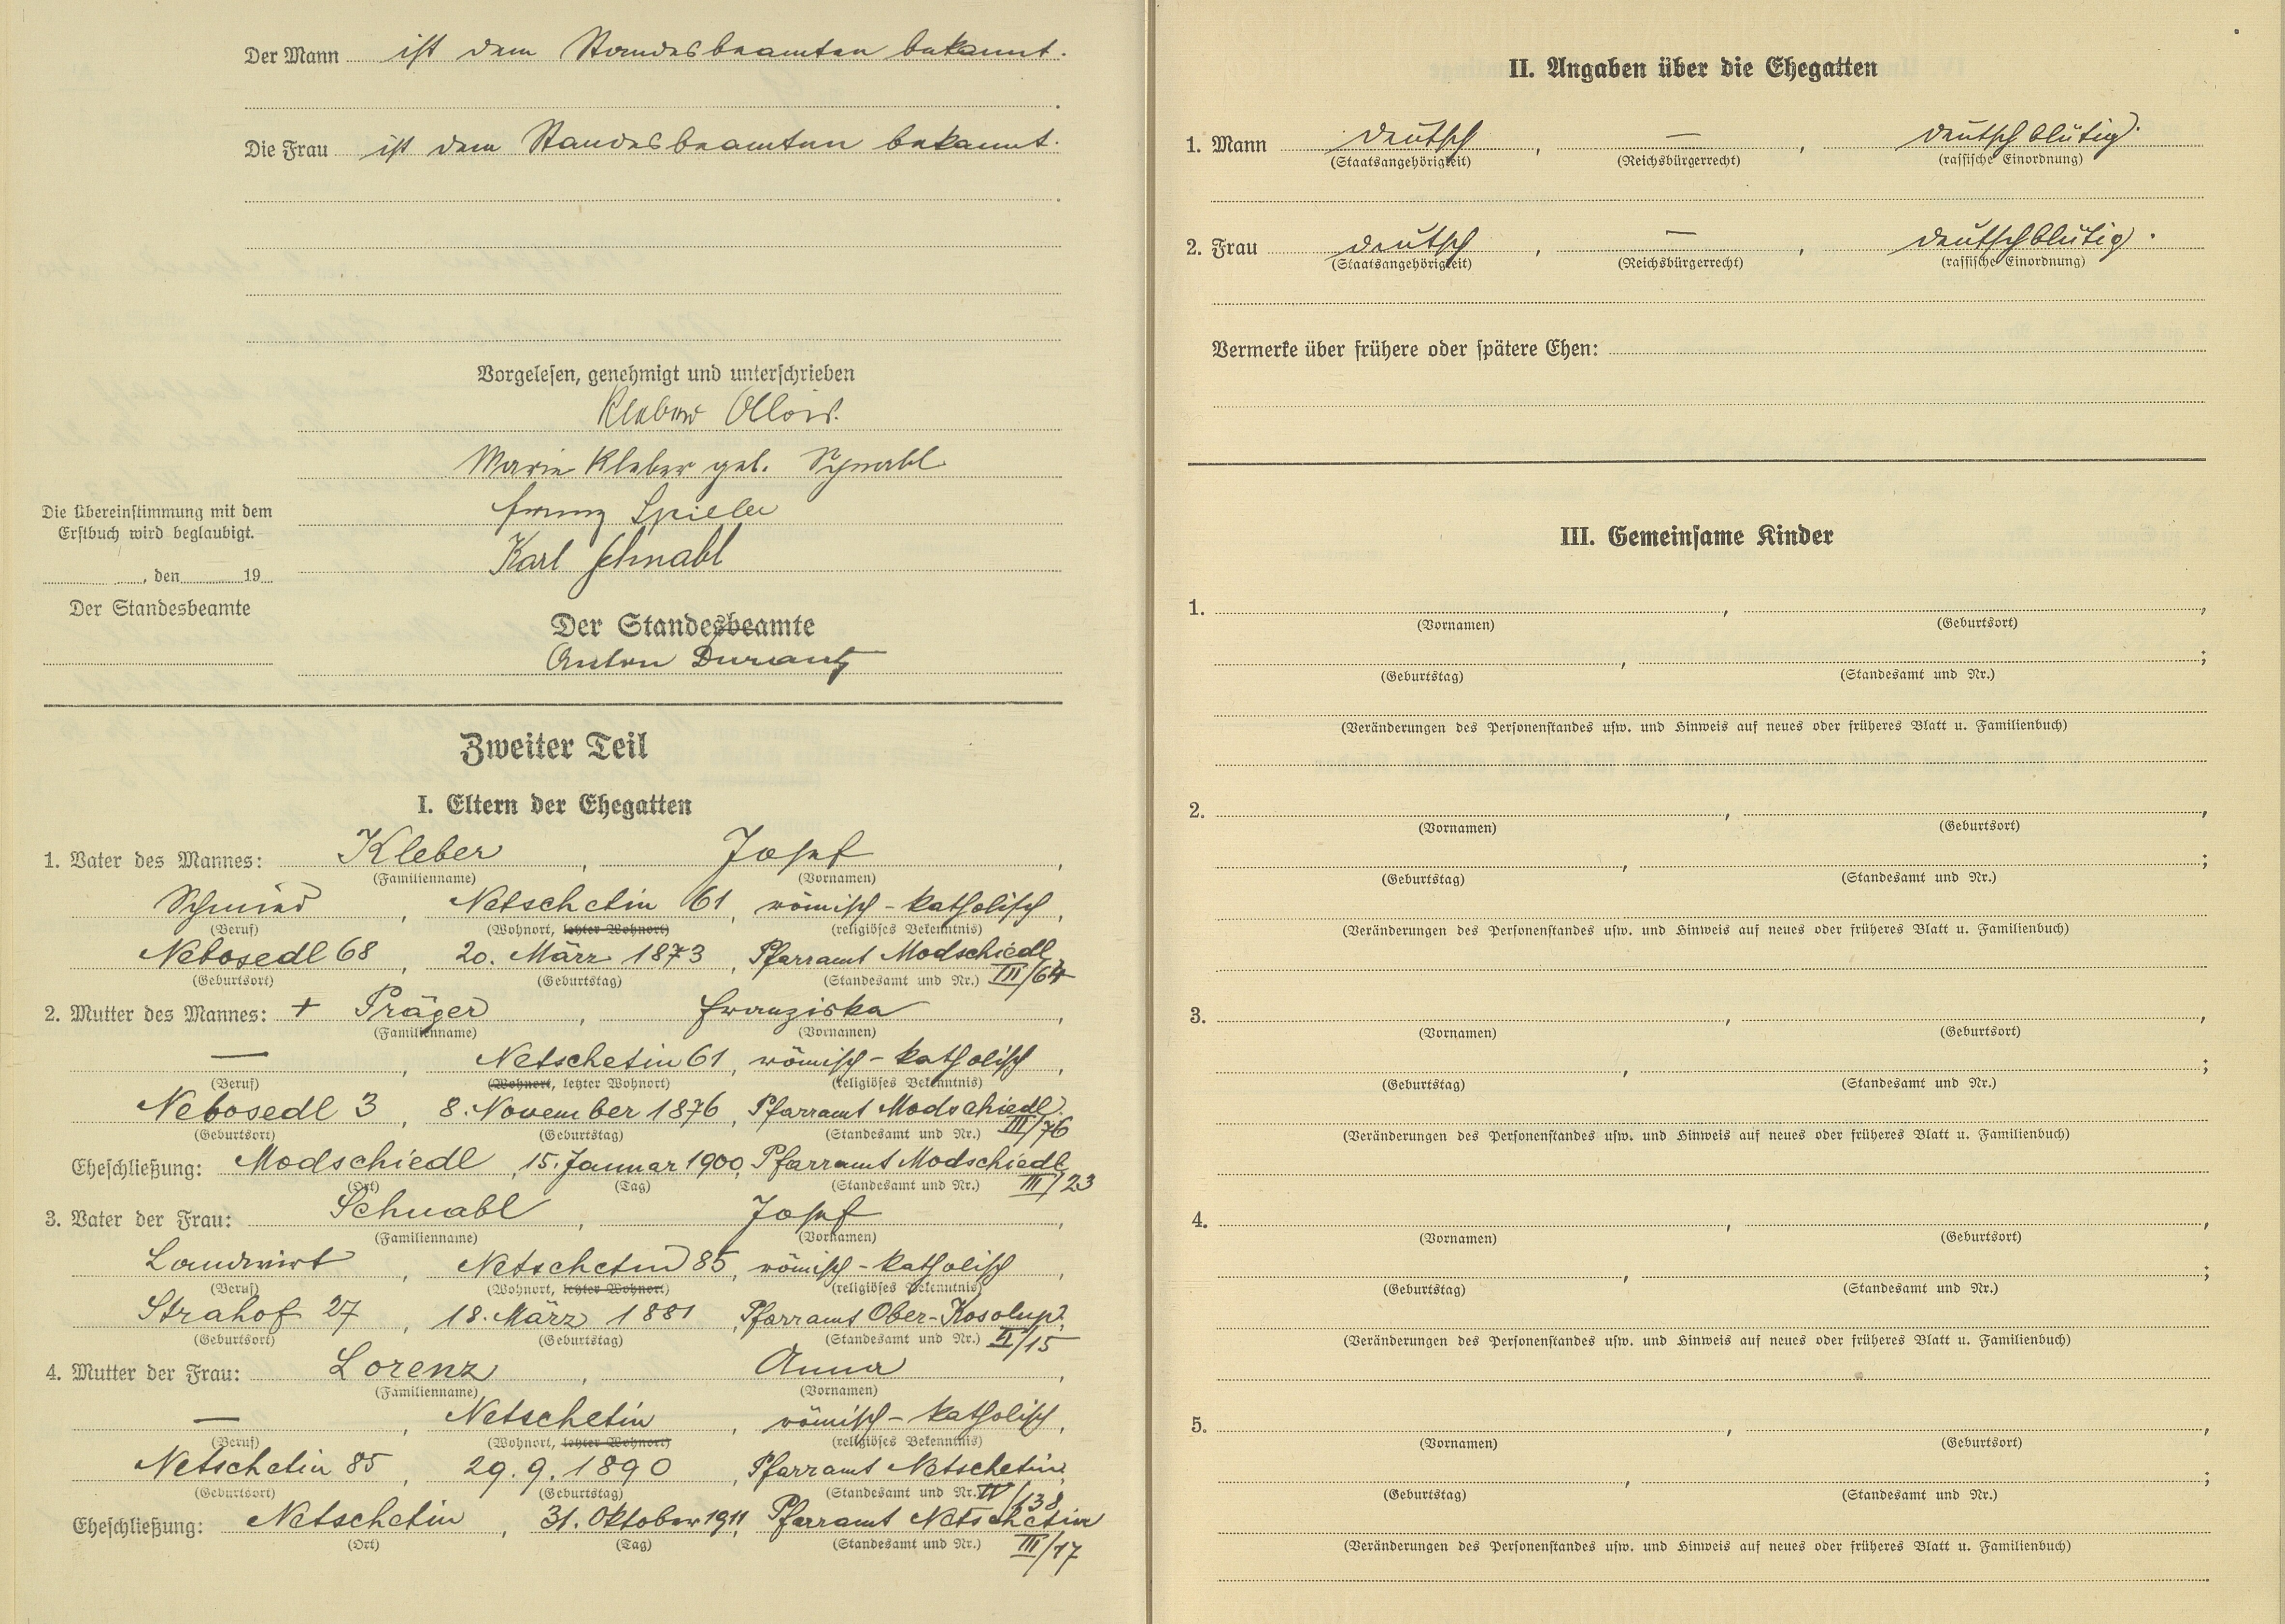 Der Mann ist dem Standesbeamten bekannt.
Die Frau ist dem Standesbeamten bekannt.
Vorgelesen, genehmigt und unterschrieben
Kleber Alois.
Marie Kleber geb. Schnabl
Franz Spieler
Karl Schnabl
Die Übereinstimmung mit dem
Erstbuch wird beglaubigt.
, den 19
Der Standesbeamte
Der Standesbeamte
Anton
Zweiter Teil
I. Eltern der Ehegatten
1. Vater des Mannes: Kleber, Josef,
(Familienname) (Vornamen)
Schmied, Netschetin 61, römisch-katholisch,
(Beruf) (Wohnort, letzter Wohnort) (religiöses Bekenntnis)
Nebosedl 68, 20. März 1873, Pfarramt Modschiedl
(Geburtsort) (Geburtstag) (Standesamt und Nr.) III/64
2. Mutter des Mannes: + Präger, Franziska,
(Familienname) (Vornamen)
—, Netschetin 61, römisch-katholisch,
(Beruf) (Wohnort, letzter Wohnort) (religiöses Bekenntnis)
Nebosedl 3, 8. November 1876, Pfarramt Modschiedl.
(Geburtsort) (Geburtstag) (Standesamt und Nr.) III/76
Eheschließung: Modschiedl, 15. Januar 1900, Pfarramt Modschiedl
(Ort) (Tag) (Standesamt und Nr.) III/23
3. Vater der Frau: Schnabl, Josef,
(Familienname) (Vornamen)
Landwirt, Netschetin 85, römisch-katholisch,
(Beruf) (Wohnort, letzter Wohnort) (religiöses Bekenntnis)
Strahof 27, 18. März 1881, Pfarramt Ober-Kosolup,
(Geburtsort) (Geburtstag) (Standesamt und Nr.) II/15
4. Mutter der Frau: Lorenz, Anna,
(Familienname) (Vornamen)
—, Netschetin, römisch-katholisch,
(Beruf) (Wohnort, letzter Wohnort) (religiöses Bekenntnis)
Netschetin 85, 29.9.1890, Pfarramt Netschetin,
(Geburtsort) (Geburtstag) (Standesamt und Nr.) IV/138
Eheschließung: Netschetin, 31. Oktober 1911, Pfarramt Netschetin
(Ort) (Tag) (Standesamt und Nr.) III/17
II. Angaben über die Ehegatten
1. Mann deutsch, —, deutschblütig.
(Staatsangehörigkeit) (Reichsbürgerrecht) (rassische Einordnung)
2. Frau deutsch, —, deutschblütig.
(Staatsangehörigkeit) (Reichsbürgerrecht) (rassische Einordnung)
Vermerke über frühere oder spätere Ehen:
III. Gemeinsame Kinder
1. , ,
(Vornamen) (Geburtsort)
, ;
(Geburtstag) (Standesamt und Nr.)
(Veränderungen des Personenstandes usw. und Hinweis auf neues oder früheres Blatt u. Familienbuch)
2. , ,
(Vornamen) (Geburtsort)
, ;
(Geburtstag) (Standesamt und Nr.)
(Veränderungen des Personenstandes usw. und Hinweis auf neues oder früheres Blatt u. Familienbuch)
3. , ,
(Vornamen) (Geburtsort)
, ;
(Geburtstag) (Standesamt und Nr.)
(Veränderungen des Personenstandes usw. und Hinweis auf neues oder früheres Blatt u. Familienbuch)
4. , ,
(Vornamen) (Geburtsort)
, ;
(Geburtstag) (Standesamt und Nr.)
(Veränderungen des Personenstandes usw. und Hinweis auf neues oder früheres Blatt u. Familienbuch)
5. , ,
(Vornamen) (Geburtsort)
, ;
(Geburtstag) (Standesamt und Nr.)
(Veränderungen des Personenstandes usw. und Hinweis auf neues oder früheres Blatt u. Familienbuch)